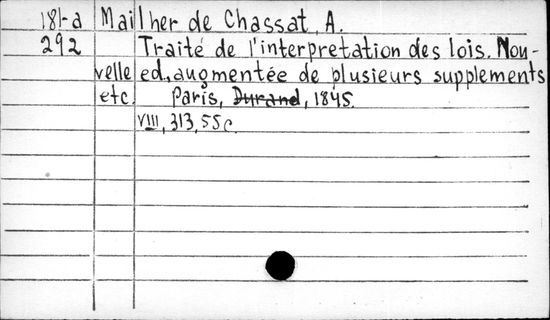 181-a Mailher de Chassat, A.
292 Traité de l'interpretation des lois. Nou-
velle ed. augmentée de plusieurs supplements
etc. Paris, Durand, 1845.
VIII, 313, 55 c.